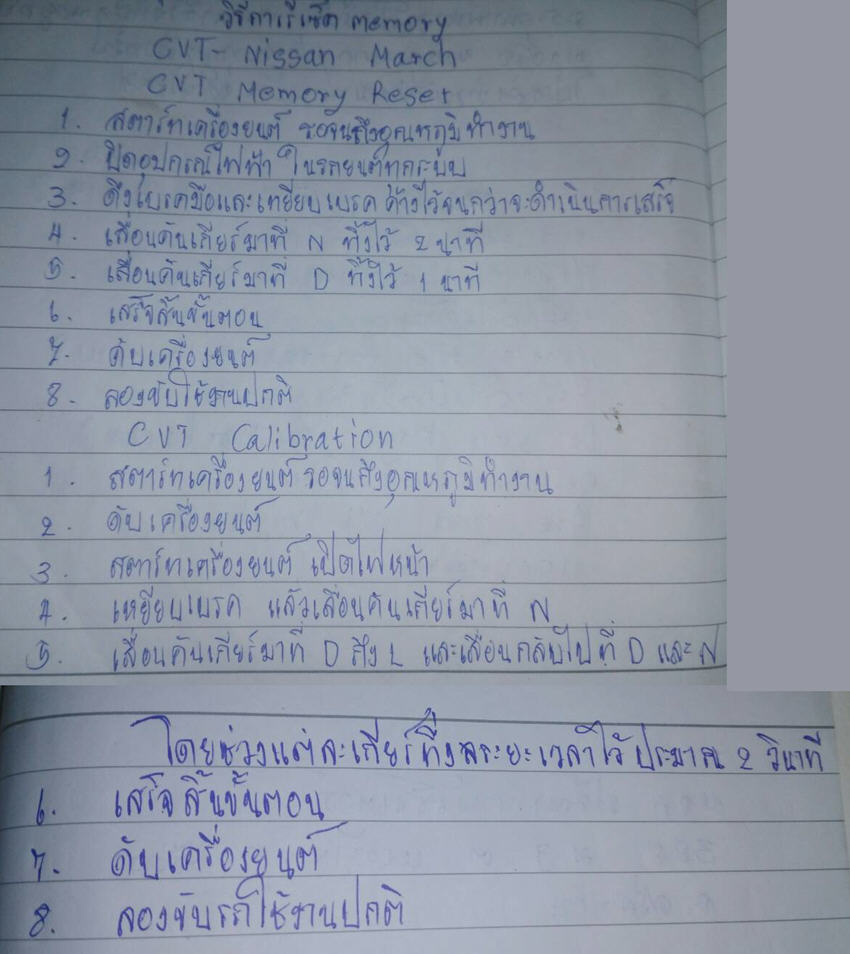 วิธีการรีเซ็ต memory
CVT- Nissan March
CVT Memory Reset
1. สตาร์ทเครื่องยนต์ รอจนถึงอุณหภูมิทำงาน
2. ปิดอุปกรณ์ไฟฟ้า ในรถยนต์ทุกระบบ
3. ดึงเบรคมือและเหยียบเบรค ค้างไว้จนกว่าจะดำเนินการเสร็จ
4. เลื่อนคันเกียร์มาที่ N ทิ้งไว้ 2 นาที
5. เลื่อนคันเกียร์มาที่ D ทิ้งไว้ 1 นาที
6. เสร็จสิ้นขั้นตอน
7. ดับเครื่องยนต์
8. ลองขับใช้งานปกติ
CVT Calibration
1. สตาร์ทเครื่องยนต์ รอจนถึงอุณหภูมิทำงาน
2. ดับเครื่องยนต์
3. สตาร์ทเครื่องยนต์ เปิดไฟหน้า
4. เหยียบเบรค แล้วเลื่อนคันเกียร์มาที่ N
5. เลื่อนคันเกียร์มาที่ D ถึง L และเลื่อนกลับไปที่ D และ N
โดยช่วงแต่ละเกียร์ทิ้งระยะเวลาไว้ ประมาณ 2 วินาที
6. เสร็จสิ้นขั้นตอน
7. ดับเครื่องยนต์
8. ลองขับรถใช้งานปกติ